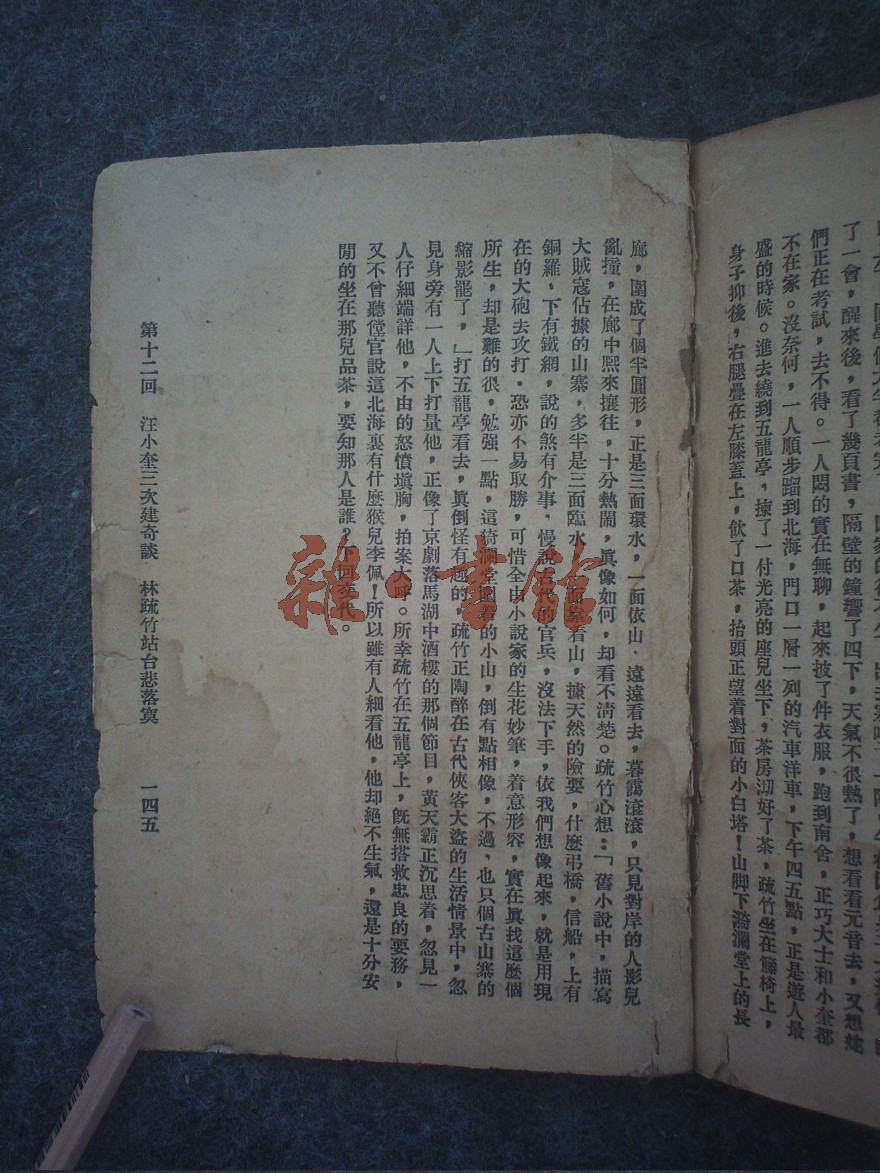 了一會，醒來後，看了幾頁書，隔壁的鐘響了四下，天氣不很熱了，想看看元音去，又想她
們正在考試，去不得。一人悶的實在無聊，起來披了件衣服，跑到南舍，正巧大士和小奎都
不在家。沒奈何，一人順步蹓到北海，門口一層一列的汽車洋車，下午四五點，正是遊人最
盛的時候。進去繞到五龍亭，揀了一付光亮的座兒坐下，茶房沏好了茶，疏竹坐在籐椅上，
身子抑後，右腿疊在左膝蓋上，飲了口茶，抬頭正望着對面的小白塔！山脚下漪瀾堂上的長
廊，圍成了個半圓形，正是三面環水，一面依山．遠遠看去，暮靄滾滾，只見對岸的人影兒
亂撞，在廊中熙來攘往，十分熱鬧，眞像如何，却看不清楚。疏竹心想：「舊小說中，描寫
大賊寇佔據的山寨，多半是三面臨水，一面靠着山，據天然的險要，什麼弔橋，信船，上有
銅羅、下有鐵網，說的煞有介事．慢說古代的官兵，沒法下手，依我們想像起來，就是用現
在的大砲去攻打．恐亦不易取勝，可惜全由小說家的生花妙筆，着意形容，實在眞找這麼個
所生，却是難的很，勉强一點，這猗瀾堂圍着的小山，倒有點相像，不過、也只個古山寨的
縮影罷了，」打五龍亭看去，眞倒怪有趣的，疏竹正陶醉在古代俠客大盜的生活情景中，忽
見身旁有一人上下打量他，正像了京劇落馬湖中酒樓的那個節目，黃天霸正沉思着，忽見一
人仔細端詳他，不由的怒憤塡胸，拍案大呼。所幸疏竹在五龍亭上，旣無搭救忠良的要務，
又不曾聽儻官說這北海裏有什麼猴兒李佩！所以雖有人細看他，他却絕不生氣，還是十分安
閒的坐在那兒品茶，要知那人是誰？下回交代。
第十二回　汪小奎三次建奇談　林疏竹站台悲落寞　一四五
雜·書館